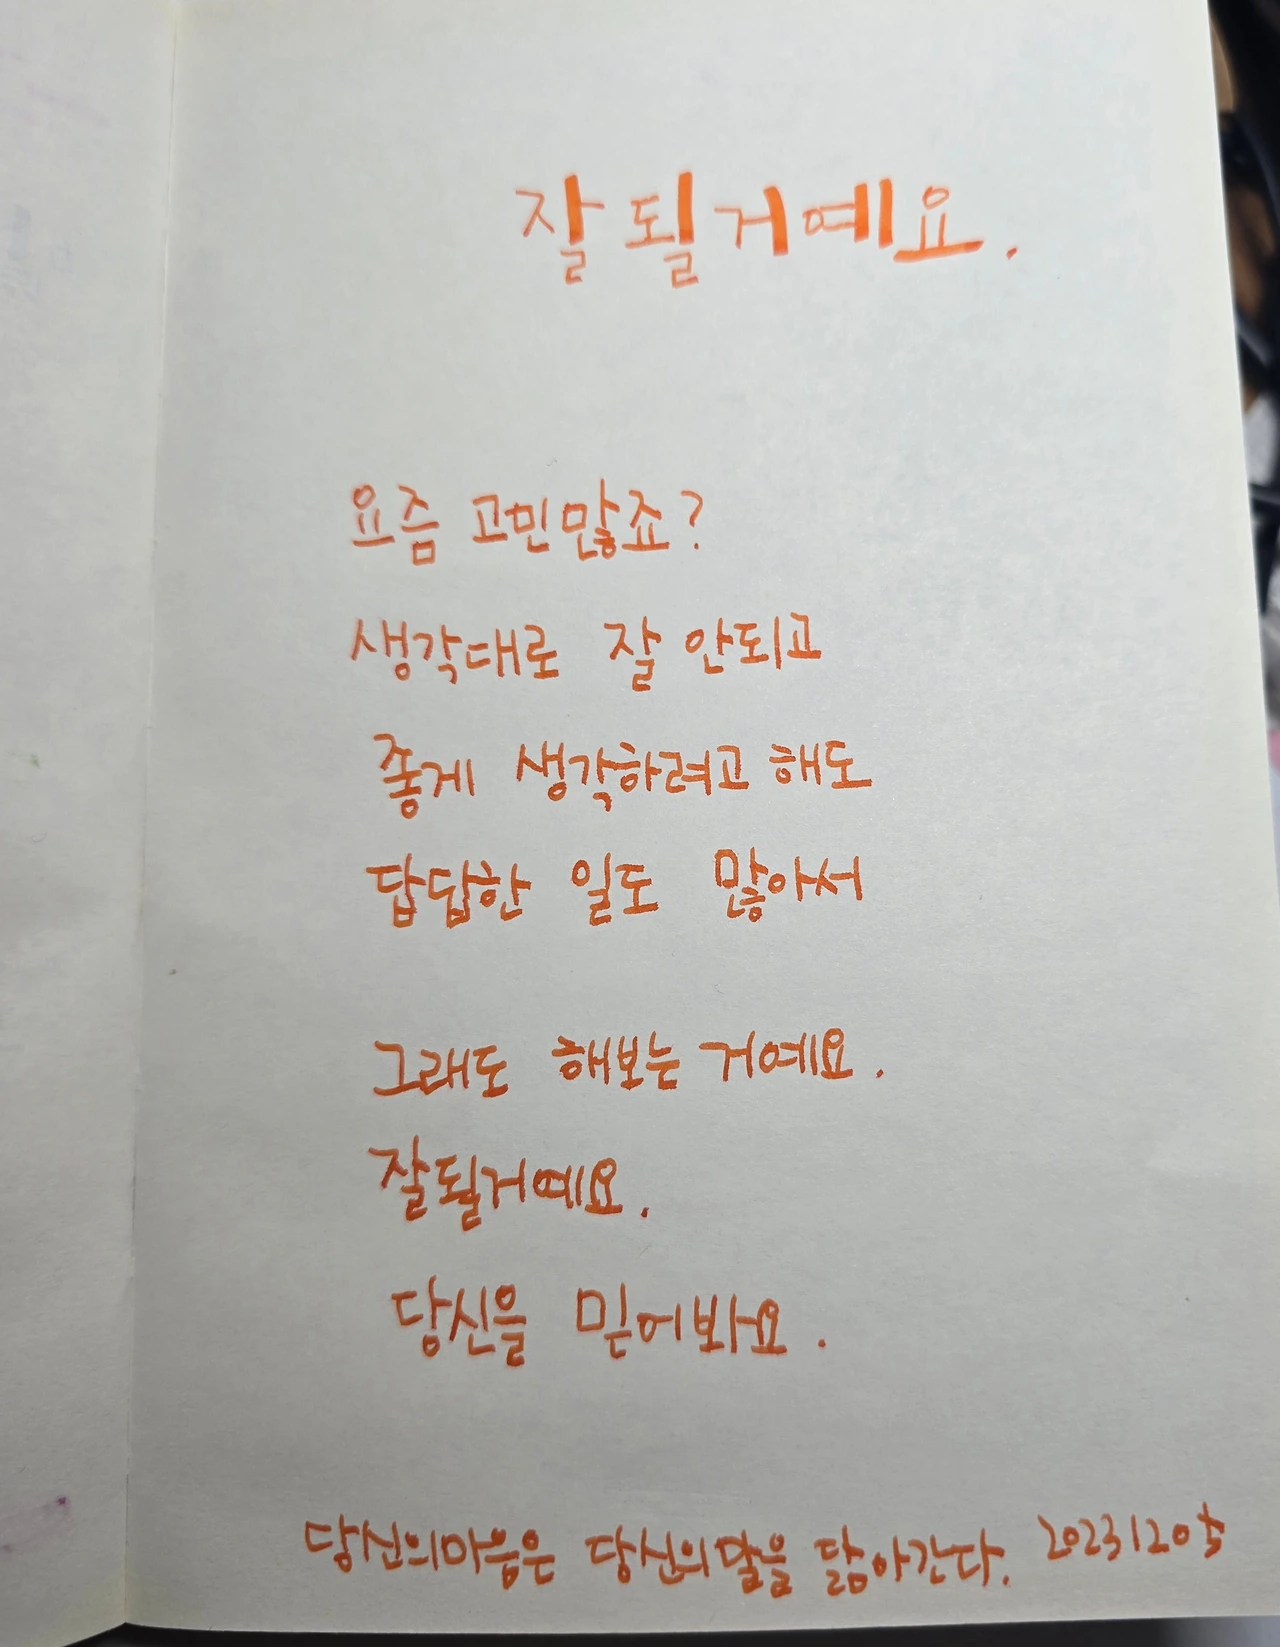 잘 될 거예요.
요즘 고민많죠?
생각대로 잘 안되고
좋게 생각하려고 해도
답답한 일도 많아서
그래도 해보는 거예요.
잘될거예요.
당신을 믿어봐요.
당신의마음은 당신의말을 닮아간다. 20231205